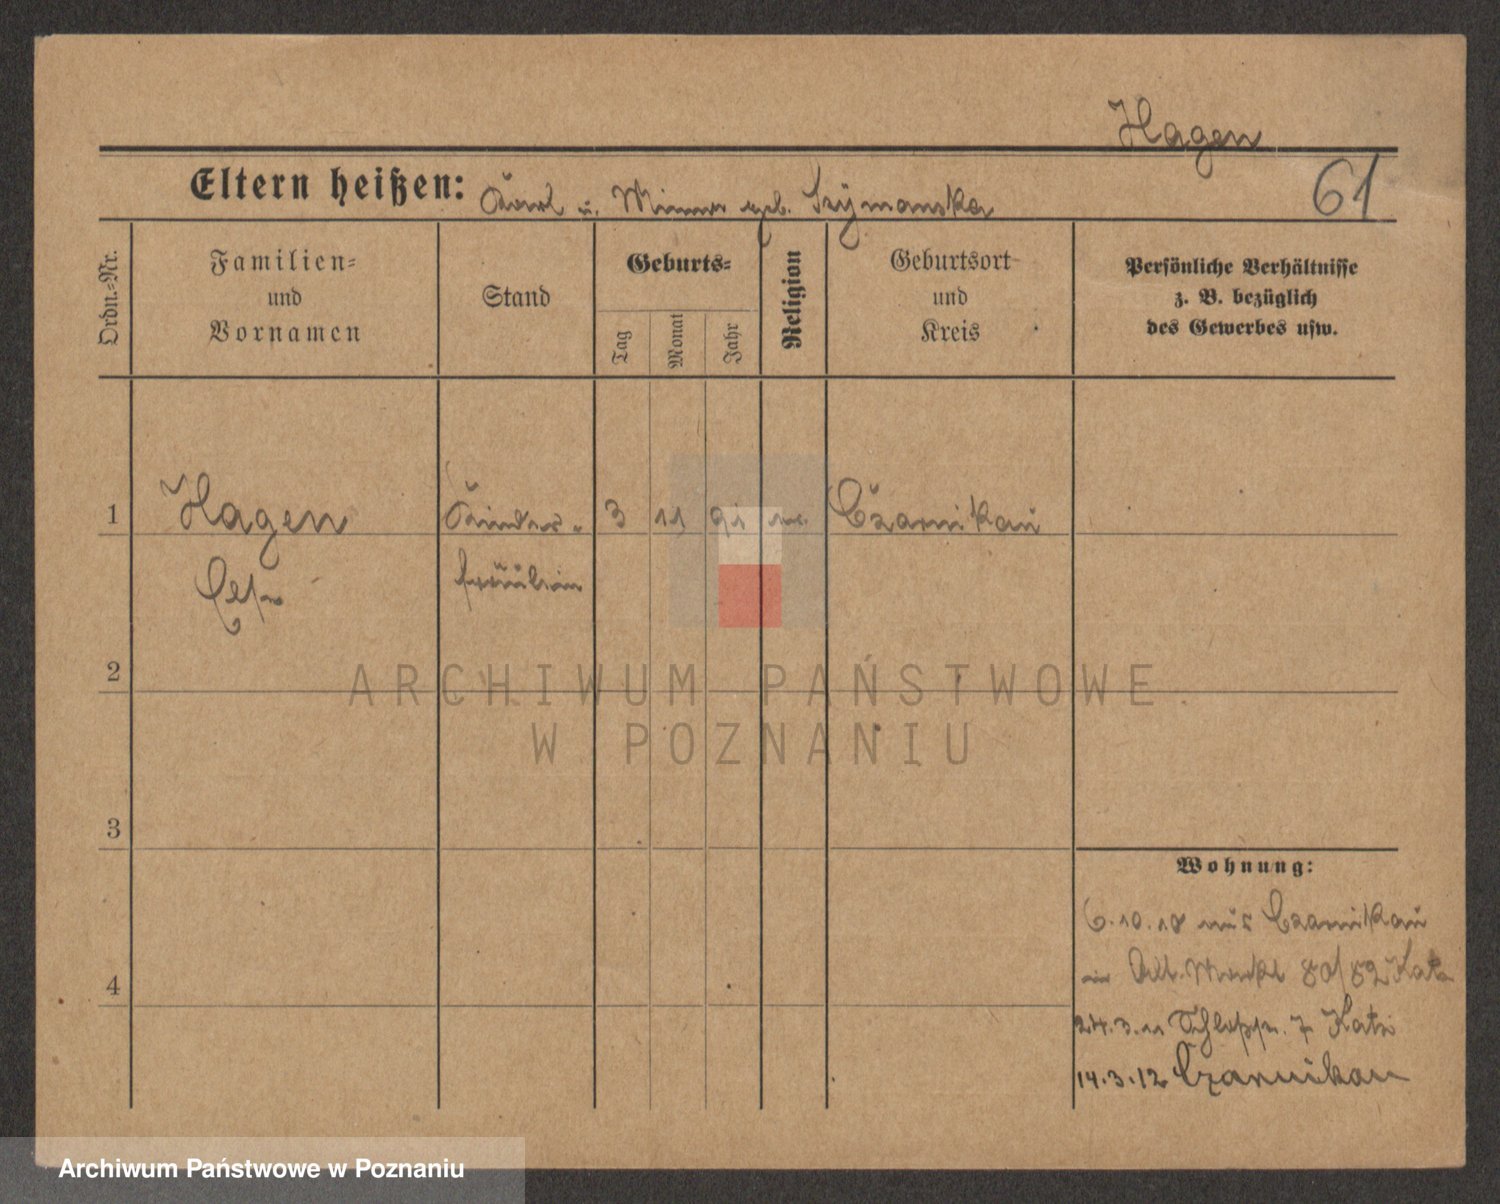 Hagen
61
Eltern heißen: Karl u. Minna geb. Szymanska
Ordn.=Nr.
Familien=
und
Vornamen
Stand
Geburts=
Tag
Monat
Jahr
Religion
Geburtsort
und
Kreis
Persönliche Verhältnisse
z. B. bezüglich
des Gewerbes usw.
1 Hagen Kinder- 3 11 91 Czarnikau
fräulein
2
ARCHIWUM PAŃSTWOWE
W POZNANIU
3
Wohnung:
6.10.10 aus Czarnikau
in Alt. Markt 80/82
4
24.3.11 Schloßstr. 7
14.3.12 Czarnikau
Archiwum Państwowe w Poznaniu